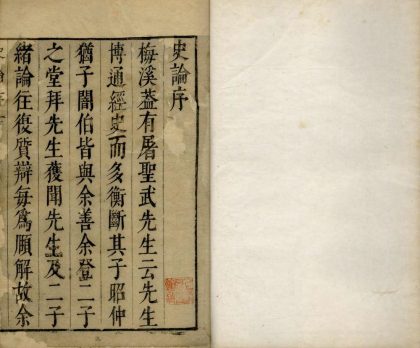 史論序
梅溪蓋有屠聖武先生云先生
博通經史而多衡斷其子昭仲
猶子闇伯皆與余善余登二子
之堂拜先生獲聞先生及二子
緒論往復質辯每爲頤解故余